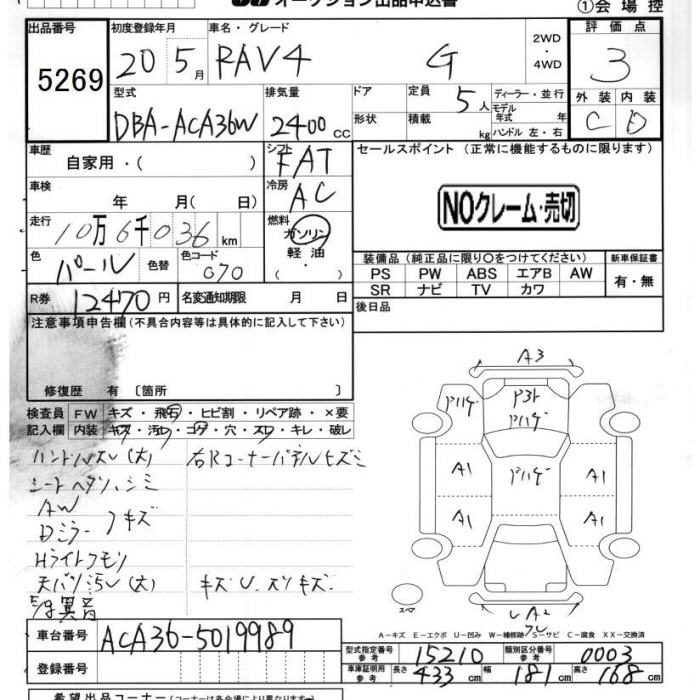 オークション出品申込書
①会場控
出品番号
5269
初度登録年月
20 5月
車名・グレード
RAV4 G
2WD・4WD
評価点
3
型式
DBA-ACA36W
排気量
2400cc
ドア
形状
定員 5人
積載 kg
ディーラー・並行
モデル年式 年
ハンドル 左・右
外装 内装
C D
車歴
自家用・( )
シフト
FAT
セールスポイント (正常に機能するものに限ります)
車検
年 月( 日)
冷房
AC
NOクレーム・売切
走行
10万6千036km
燃料
ガソリン
軽油
色
パール
色替
色コード
070
装備品(純正品に限り○をつけてください)
新車保証書
PS PW ABS エアB AW
有・無
SR ナビ TV カワ
R券
12470円
名変通知期限 月 日
後日品
注意事項申告欄(不具合内容等は具体的に記入して下さい)
修復歴 有〔箇所 〕
検査員 FW キズ・飛石・ヒビ割・リペア跡・×要
記入欄 内装 キズ・汚レ・コゲ・穴・スレ・キレ・破レ
ハンドルスレ(大) 右Rコーナーパネルヒズミ
シートヘタリ、シミ
AW
Dミラー キズ
Hライトクモリ
天バリ汚レ(大) キズU、スリキズ
異音
A3
ハゲ P3ト ハゲ ハゲ
A1 ハゲ A1
A1 A1
スペア
A2
A-キズ E-エクボ U-凹み W-補修跡 S-サビ C-腐食 XX-交換済
車台番号
ACA36-5019989
登録番号
型式指定番号
参考
15210
類別区分番号
参考
0003
車庫証明用
参考
長さ 433cm 幅 181cm 高さ 168cm
希望出品コーナー